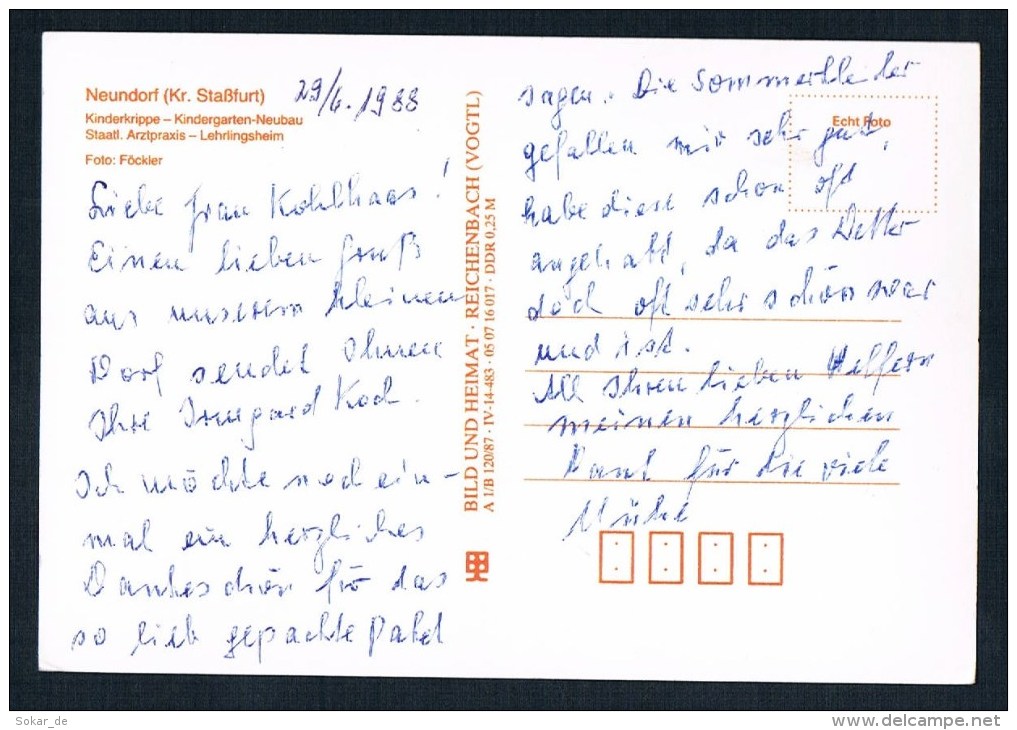 Neundorf (Kr. Staßfurt)
29/6. 1988
Kinderkrippe – Kindergarten-Neubau
Staatl. Arztpraxis – Lehrlingsheim
Foto: Föckler
Liebe Frau Kohlhaas!
Einen lieben Gruß
aus unserem kleinen
Dorf sendet Ihnen
Ihre Irmgard Koch.
Ich möchte noch ein-
mal ein herzliches
Dankeschön für das
so lieb gepackte Paket
BILD UND HEIMAT · REICHENBACH (VOGTL)
A 1/B 120/87 · IV-14-483 · 05 07 16 017 · DDR 0,25 M
sagen. Die Sommerkleider
Echt Foto
gefallen mir sehr gut,
habe diese schon oft
angehabt, da das Wetter
doch oft sehr schön war
und ist.
All Ihren lieben Helfern
meinen herzlichen
Dank für die viele
Mühe
Sokar_de
www.delcampe.net